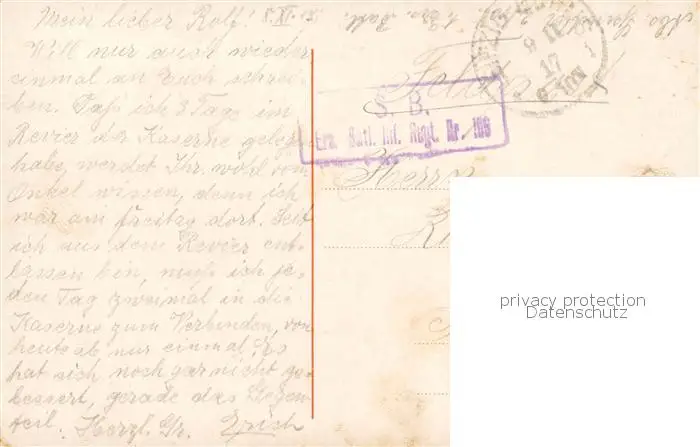 Mein lieber Rolf! 8. XI.
Will nur auch wieder
einmal an Euch schrei-
ben. Daß ich 3 Tage im
Revier der Kaserne gelegen
habe, werdet Ihr wohl von
Onkel wissen, denn ich
war am Freitag dort. Seit
ich aus dem Revier ent-
lassen bin, muß ich je-
den Tag zweimal in die
Kaserne zum Verbinden, von
heute ab nur einmal. Es
hat sich noch gar nicht ge-
bessert, gerade das Gegen-
teil. Herzl. Gr.
S. B.
Ers. Batl. Inf. Regt. Nr. 106
Herrn
privacy protection
Datenschutz